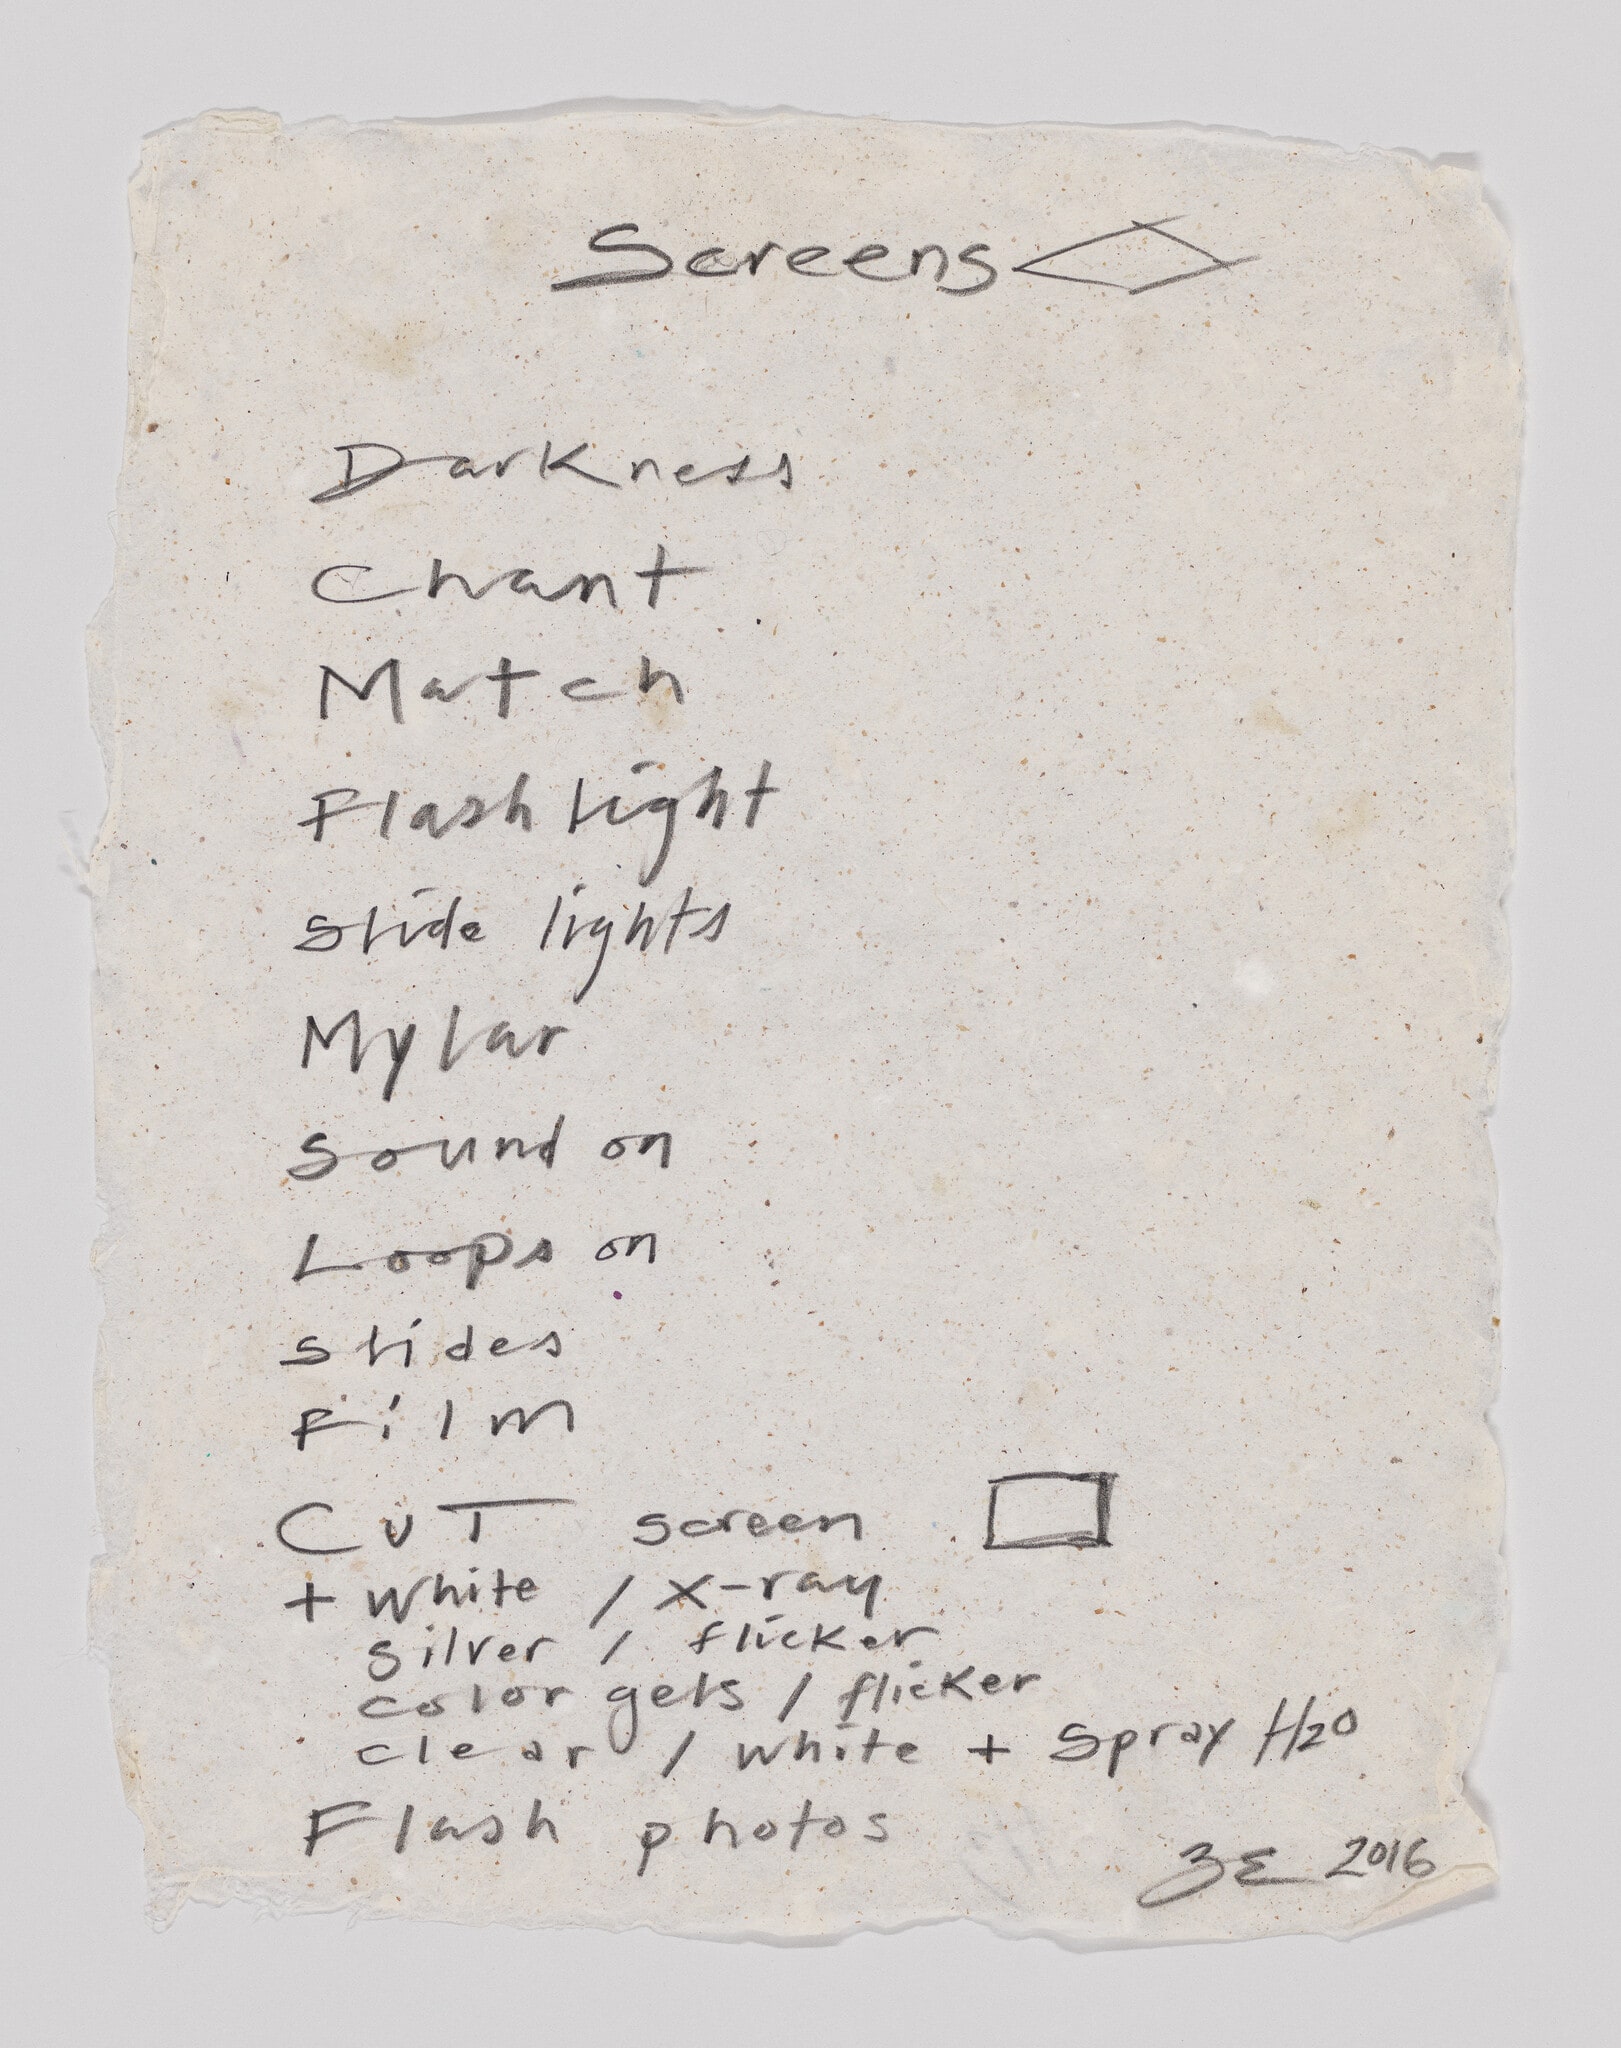 Screens
Darkness
Chant
Match
Flash light
slide lights
Mylar
Sound on
Loops on
slides
Film
CUT screen
+ white / x-ray
silver / flicker
color gels / flicker
clear / white + spray H2O
Flash photos
2016